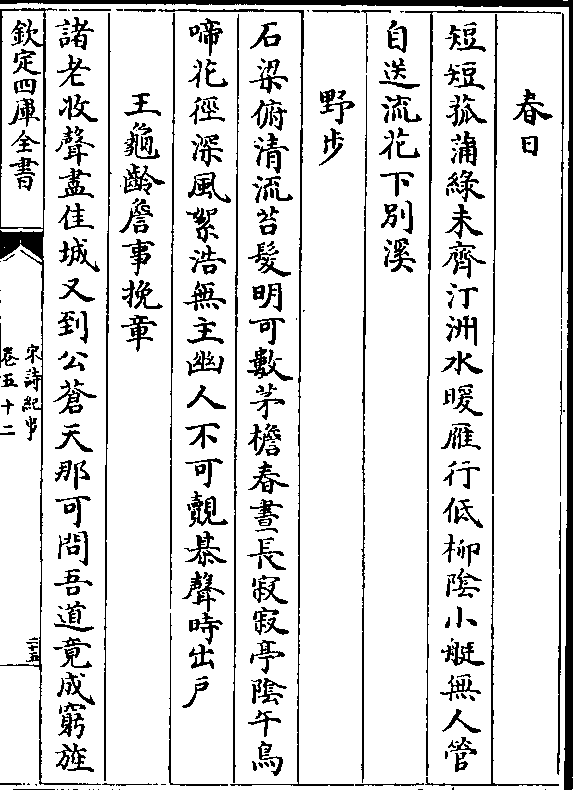 春日
短短菰蒲綠未齊汀洲水暖雁行低柳隂小艇無人管
自送流花下別溪
野步
石梁俯清流苔髮明可數茅檐春晝長寂寂亭隂午鳥
啼花徑深風絮浩無主幽人不可覿棊聲時出戶
王龜齡詹事挽章
諸老收聲盡佳城又到公蒼天那可問吾道竟成窮旌
欽定四庫全書
宋詩紀事
卷五十二
二十五